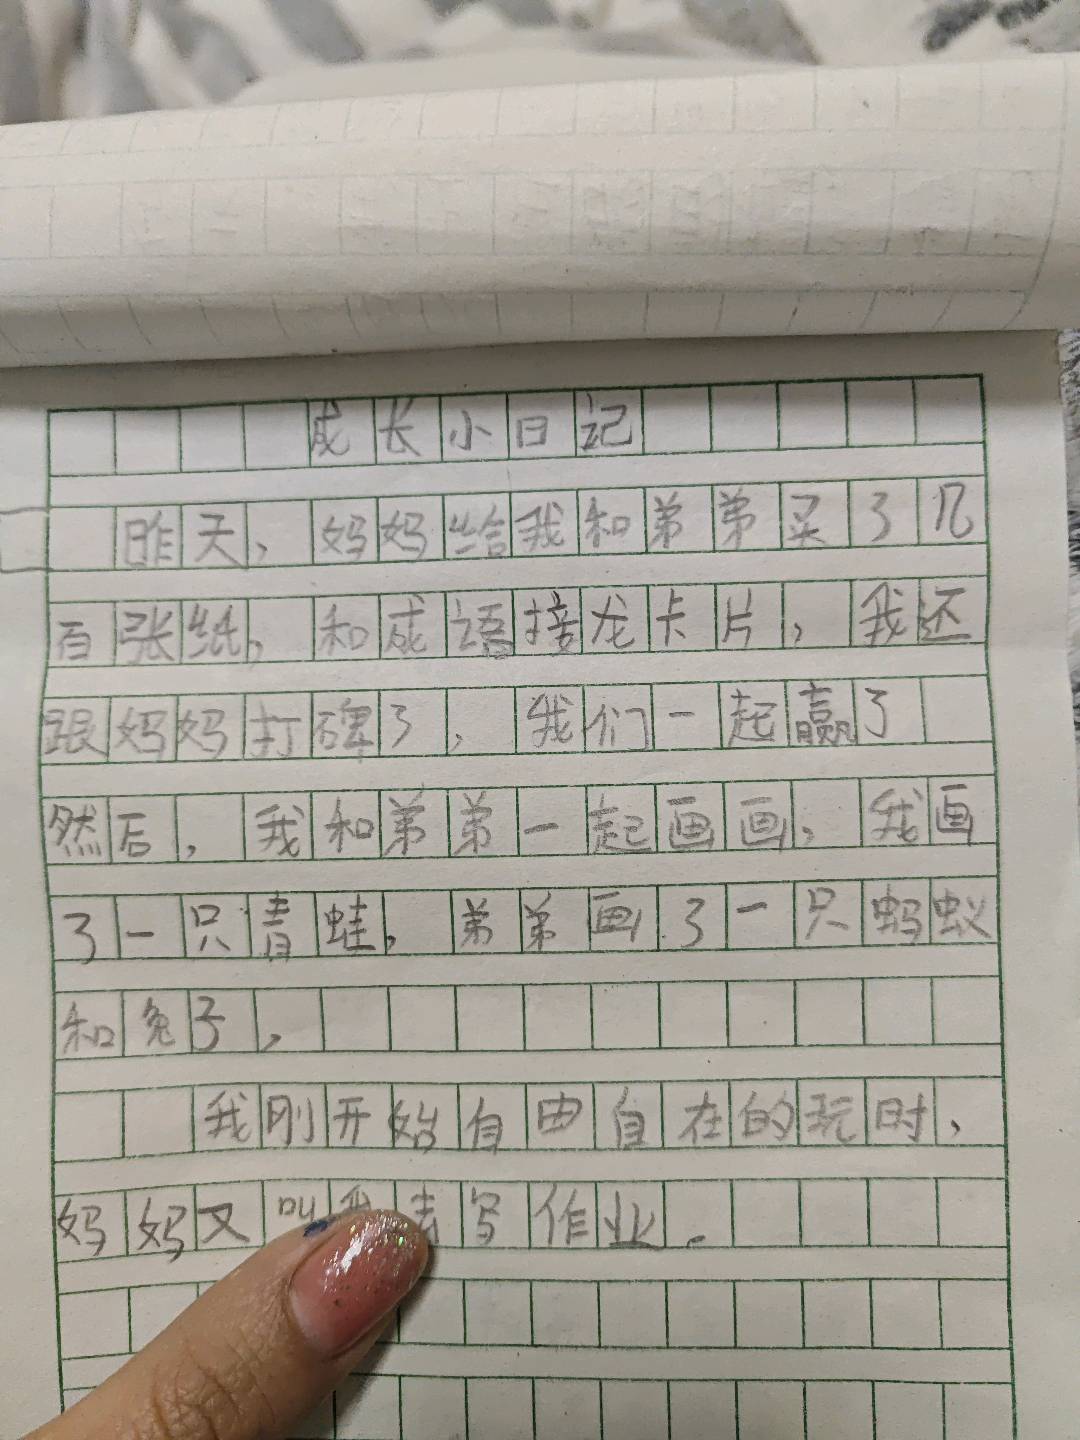 成长小日记
昨天，妈妈给我和弟弟买了几
百张纸，和成语接龙卡片，我还
跟妈妈打碑了，我们一起赢了
然后，我和弟弟一起画画，我画
了一只青蛙，弟弟画了一只蚂蚁
和兔子，
我刚开始自由自在的玩时，
妈妈又叫我去写作业.